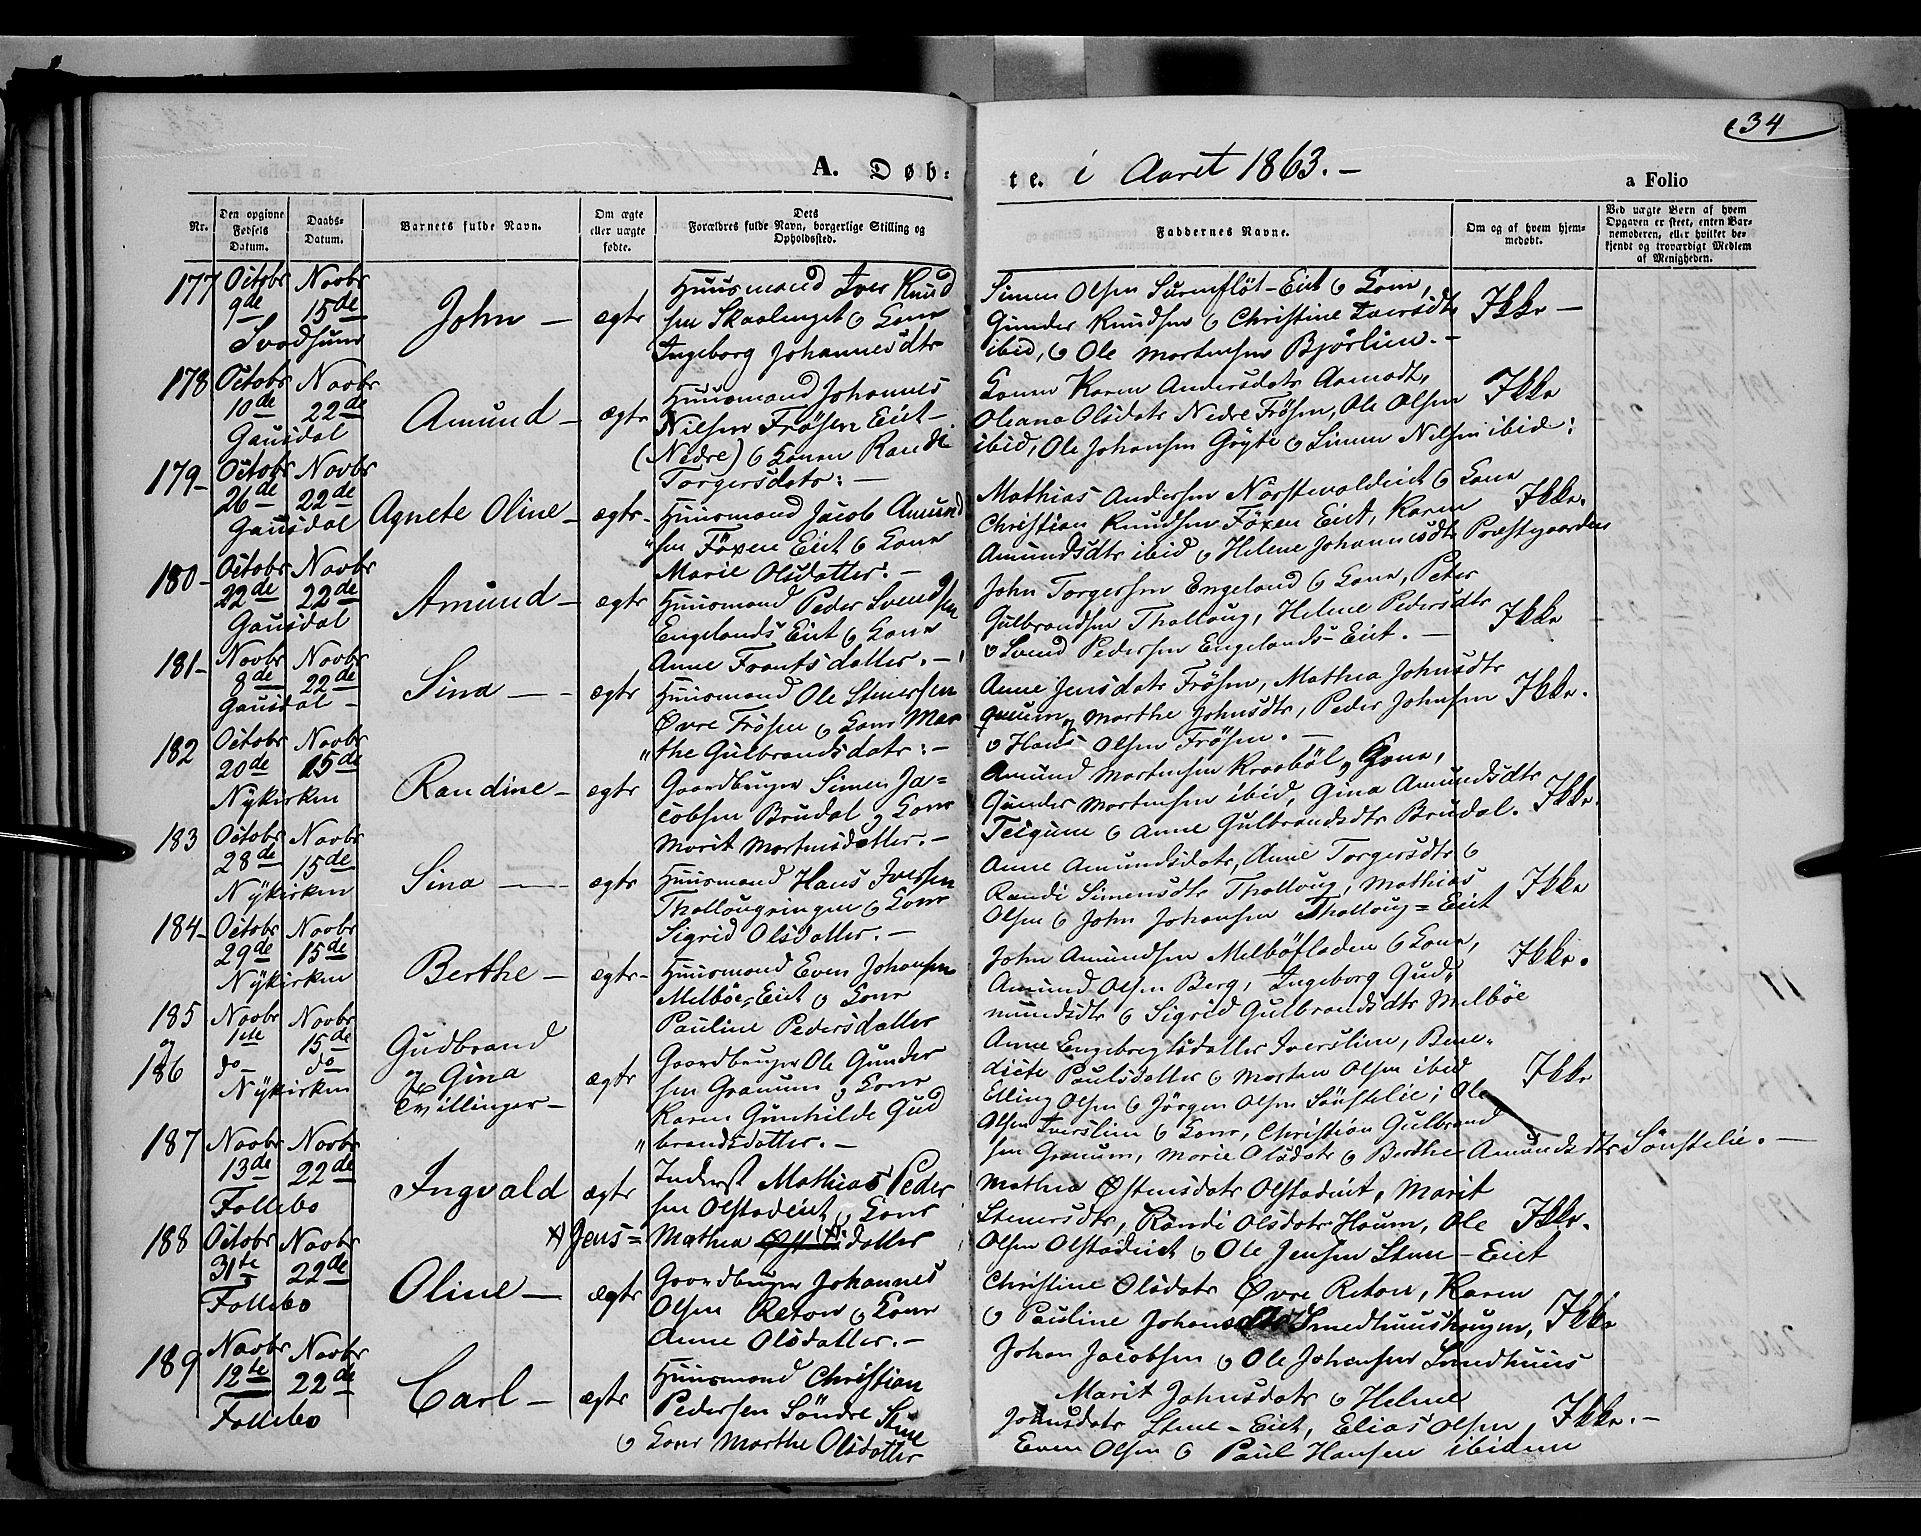 34
A. Døb-
te. i Aaret 1863. —
a Folio
Nr.
Den opgivne Fødsels Datum.
Daabs-Datum.
Barnets fulde Navn.
Om ægte eller uægte fødte.
Dets Forældres fulde Navn, borgerlige Stilling og Opholdssted.
Faddernes Navne.
Om og af hvem hjemmedøbt.
Ved uægte Børn af hvem Opgaven er skeet, enten Barnemoderen, eller hvilket bekjendt og troværdigt Medlem af Menigheden.
177 Octobr 9de Novbr 15de
Svadsum
John — ægte
Huusmand Iver Knud
sen Skaalenget & Kone
Ingeborg Johannesdtr
Simen Olsen Eiet & Kone,
Gunder Knudsen & Christine Iversdtr
ibid, & Ole Mortensen Björlien. —
Ikke —
178 Octobr 10de Novbr 22de
Gausdal
Amund — ægte
Huusmand Johannes
Nilsen Frösen Eiet —
(Nedre) & Konen Randi
Torgersdatr: —
Konen Karen Andersdatr Aamodt,
Oleana Olsdatr Nedre Frösen, Ole Olsen
ibid, Ole Johansen Gryte & Simen Nilsen ibid:
Ikke
179 — Octobr 26de Novbr 22de
Gausdal
Agnete Oline — ægte —
Huusmand Jacob Amund
sen Föxen Eiet & Kone
Marie Olsdatter. —
Mathias Andersen Eiet & Kone
Christian Knudsen Föxen Eiet, Karen
Amundsdtr ibid & Helene Johannesdtr Præstgaarden
Ikke.
180 — Octobr 22de Novbr 22de
Gausdal
Amund — ægte
Huusmand Peder Svendsen
Engelands Eiet & Kone
Anne Frantsdatter. —
John Torgersen Engeland & Kone, Peter
Gulbrandsen Thalloug, Helene Pedersdtr
& Svend Pedersen Engelands-Eiet. —
Ikke
181 — Novbr 8de Novbr 22de
Gausdal —
Sina — ægte
Huusmand Ole Stenersen
Øvre Frösen & Kone Mar
the Gulbrandsdatr: —
Anne Jensdatr Frösen, Mathea Johnsdtr
Marthe Johnsdtr, Peder Johnsen
& Hans Olsen Frösen. —
Ikke.
182 Octobr 20de Novbr 15de
Nykirken
Randine — ægte
Gaardbruger Simen Ja=
cobsen Brudal & Kone
Marit Mortensdatter. —
Amund Mortensen Kraaböl & Kone,
Gunder Mortensen ibid, Gina Amundsdtr
& Anne Gulbrandsdtr Brudal.
Ikke.
183 Octobr 28de Novbr 15de
Nykirken
Sina — ægte
Huusmand Hans Iversen
Thallougringen & Kone
Sigrid Olsdatter. —
Anne Amundsdatr, Anne Torgersdtr &
Randi Simensdtr Thalloug, Mathias
Olsen & John Johansen Thalloug=Eiet
Ikke
184 — Octobr 29de Novbr 15de
Nykirken
Berthe — ægte —
Huusmand Even Johansen
Melböe, Eiet & Kone
Pauline Pedersdatter
John Amundsen Melböfladen & Kone,
Amund Olsen Berg, Ingeborg Gud„
mundsdtr & Sigrid Gulbrandsdtr Melböe
Ikke.
185 Novbr 1ste Novbr 15de
og
186 do — do
Nykirken
Gudbrand
og Gina
Tvillinger — ægte
Gaardbruger Ole Gunder
sen Granum & Kone
Karen Gunhilde Gud
brandsdatter. —
Anne Engebregtsdatter Iverslien, Bene„
dicte Paulsdatter & Morten Olsen ibid
Elling Olsen & Jörgen Olsen Sönstelie; Ole
Olsen Iverslien & Kone, Christian Gulbrand
sen Granum, Marie Olsdatr & Berthe Amundsdtr Sönstelie. —
Ikke
187 Novbr 13de Novbr 22de
Follebo
Ingvald ægte
Inderst Mathias Peder
sen Olstadeiet & Kone
×) Jens= Mathea datter
Mathea Østensdatr Olstadeiet, Marit
Stenersdtr, Randi Olsdatr Haum, Ole
Olsen Olstadeiet & Ole Jensen Steen-Eiet
Ikke.
188 Octobr 31te Novbr 22de
Follebo
Oline — ægte
Gaardbruger Johannes
Olsen Retow & Kone
Anne Olsdatter. —
Christine Olsdatr Øvre Retow, Karen
& Pauline Johansdtr Smedhuushaugen,
Johan Jacobsen & Ole Johansen Smedhuus
Ikke
189 Novbr 12te Novbr 22de
Follebo
Carl — ægte
Huusmand Christian
Pedersen Söndre Stene
& Kone Marthe Olsdatter
Marit Johnsdatr & Helene
Johnsdatr Stene-Eiet, Elias Olsen,
Even Olsen & Paul Hansen ibidem
Ikke. —